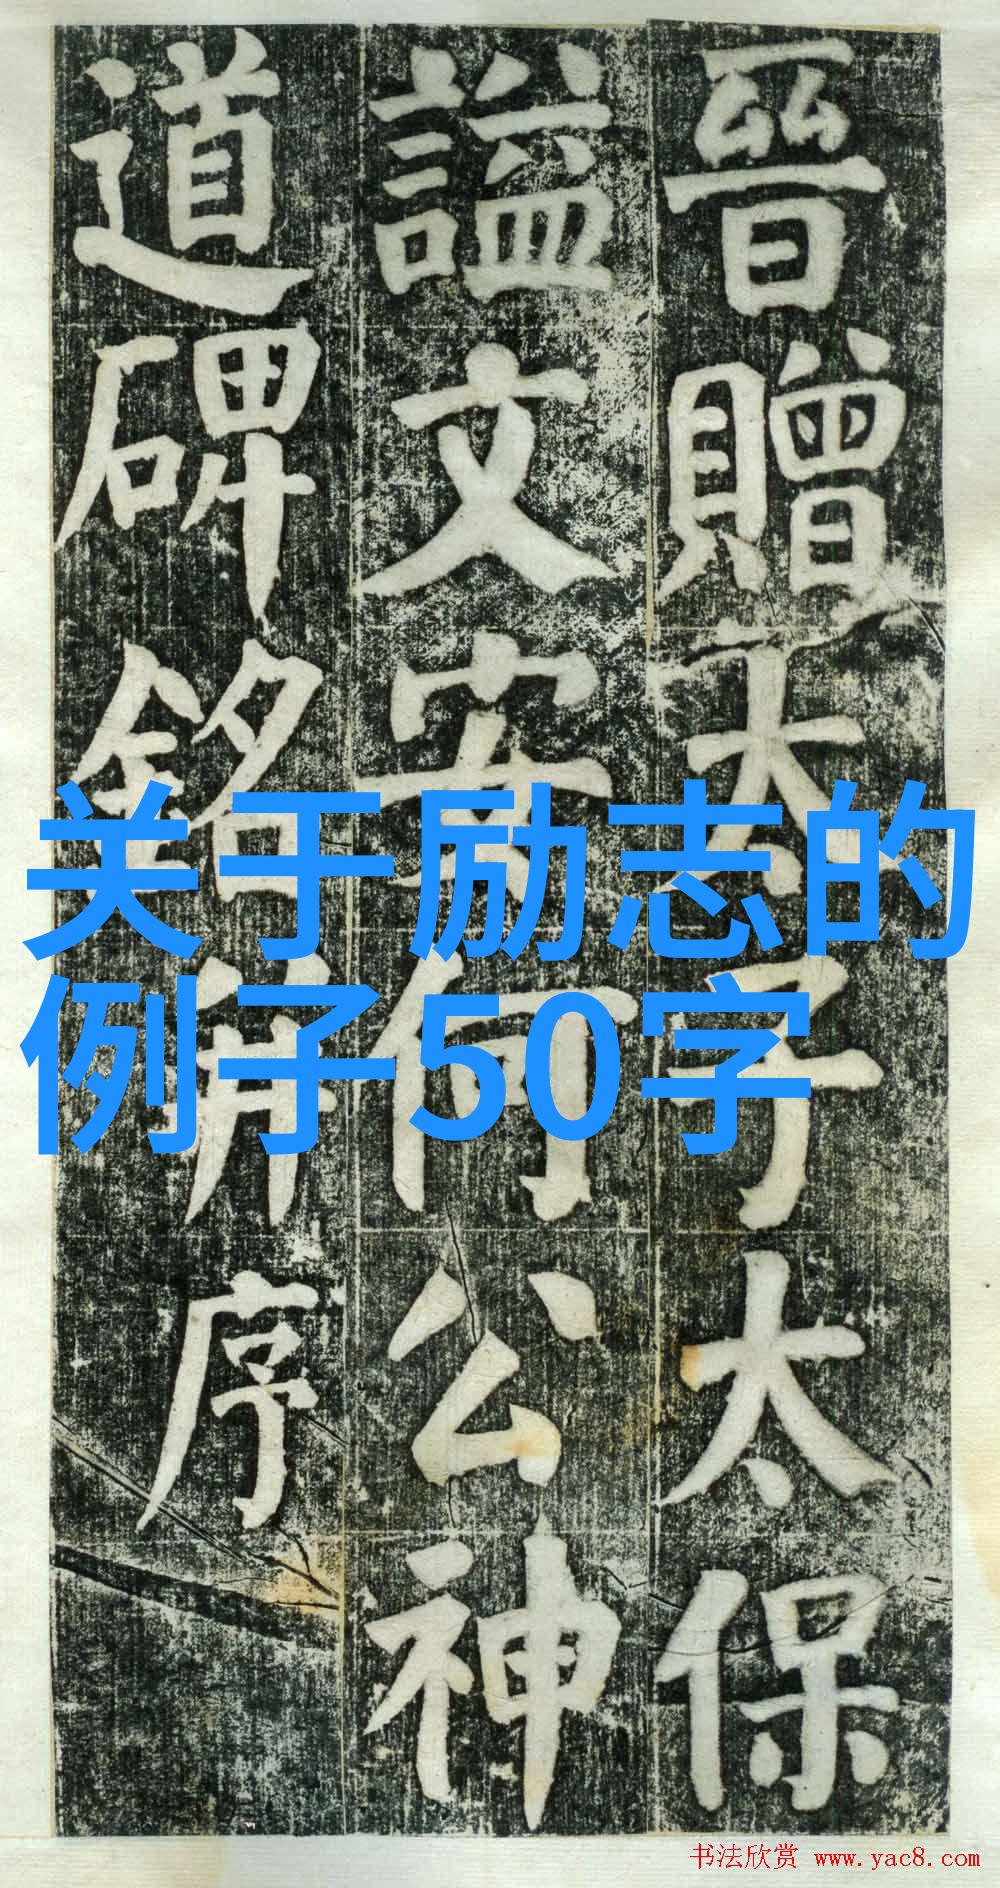 晉贈太子太保
謚文安何公神
道碑銘并序
关于励志的
例子50字
书法欣赏 www.yac8.com